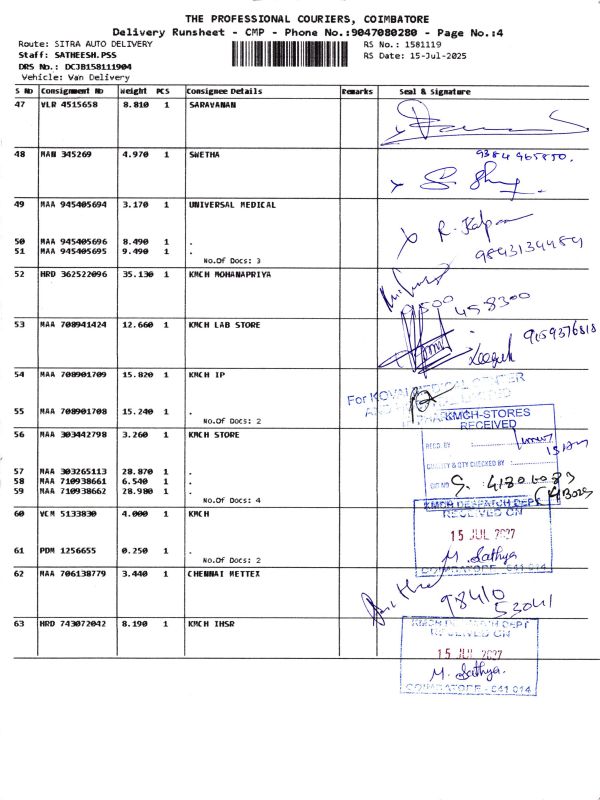 THE PROFESSIONAL COURIERS, COIMBATORE
Delivery Runsheet - CMP - Phone No.:9047080280 - Page No.:4
Route: SITRA AUTO DELIVERY
RS No.: 1581119
Staff: SATHEESH.PSS
RS Date: 15-Jul-2025
DRS No.: DCJB158111904
Vehicle: Van Delivery
S No Consignment No Weight PCS Consignee Details Remarks Seal & Signature
47 VLR 4515658 8.810 1 SARAVANAN
48 MAN 345269 4.970 1 SWETHA
9384965850.
49 MAA 945405694 3.170 1 UNIVERSAL MEDICAL
x R. Kalpana
50 MAA 945405696 8.490 1 .
51 MAA 945405695 9.490 1 .
No.Of Docs: 3
52 HRD 362522096 35.130 1 KMCH MOHANAPRIYA
458300
53 MAA 708941424 12.660 1 KMCH LAB STORE
9159376818
54 MAA 708901709 15.820 1 KMCH IP
For KOVAI MEDICAL CENTER
55 MAA 708901708 15.240 1 .
No.Of Docs: 2
KMCH-STORES
RECEIVED
56 MAA 303442798 3.260 1 KMCH STORE
RECD. BY
57 MAA 303265113 28.870 1 .
QUALITY & QTY CHECKED BY
58 MAA 710938661 6.540 1 .
59 MAA 710938662 28.980 1 .
No.Of Docs: 4
KMCH DESPATCH DEPT
60 VCM 5133830 4.000 1 KMCH
RECEIVED ON
15 JUL 2027
61 PDM 1256655 0.250 1 .
No.Of Docs: 2
M. Sathya
COIMBATORE - 641 014
62 MAA 706138779 3.440 1 CHENNAI METTEX
98410
53041
63 HRD 743072042 8.190 1 KMCH IHSR
KMCH DESPATCH DEPT
RECEIVED ON
15 JUL 2027
M. Sathya.
COIMBATORE - 641 014